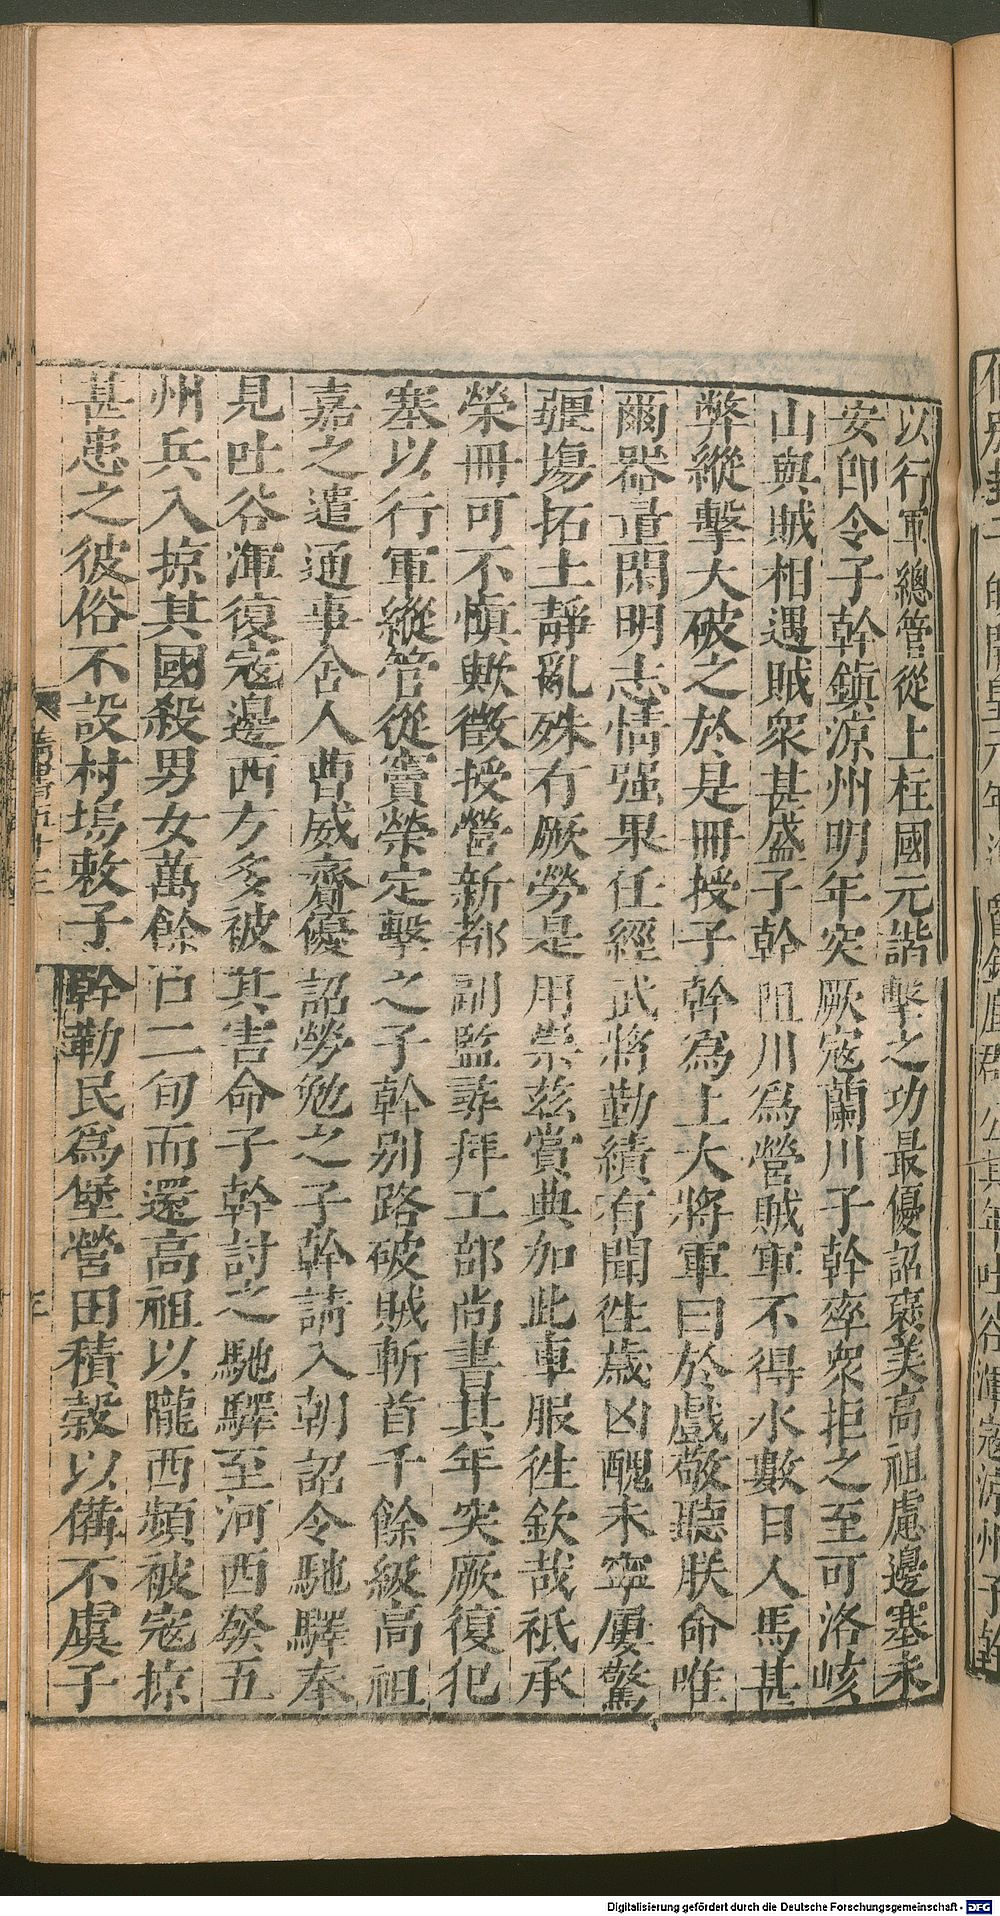 以行軍總管從上柱國元諧擊之功最優詔褒美高祖慮邊塞未
安卽令子幹鎮涼州明年突厥寇蘭川子幹率衆拒之至可洛峐
山與賊相遇賊衆甚盛子幹阻川爲營賊軍不得水數日人馬甚
弊縱擊大破之於是冊授子幹爲上大將軍曰於戲敬聽朕命唯
爾器量閑明志情强果任經武將勤績有聞徃歲凶醜未寧屢驚
疆場拓土靜亂殊有厥勞是用崇兹賞典加此車服徃欽哉祗承
榮冊可不愼歟徵授營新都副監尋拜工部尚書其年突厥復犯
塞以行軍縱管從竇榮定擊之子幹别路破賊斬首千餘級高祖
嘉之遣通事舍人曹威齎優詔勞勉之子幹請入朝詔令馳驛奉
見吐谷渾復寇邊西方多被其害命子幹討之馳驛至河西發五
州兵入掠其國殺男女萬餘口二旬而還高祖以隴西頻被寇掠
甚患之彼俗不設村塢敕子幹勒民爲堡營田積穀以備不虞子
隋書五十三
三
Digitalisierung gefördert durch die Deutsche Forschungsgemeinschaft - DFG